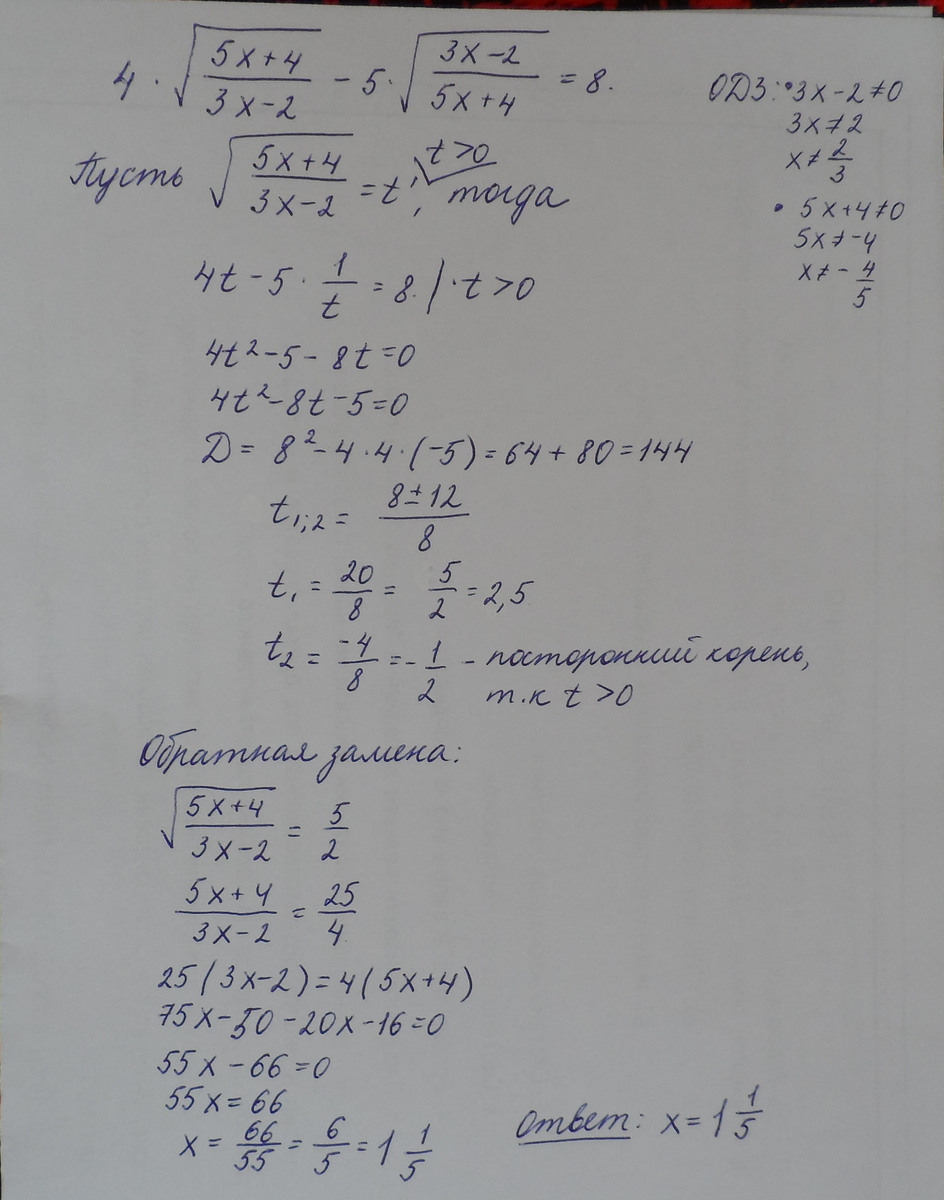 4 · √((5x+4)/(3x-2)) - 5 · √((3x-2)/(5x+4)) = 8.
ОДЗ: • 3x-2≠0
3x≠2
x≠ 2/3
• 5x+4≠0
5x≠-4
x≠ - 4/5
Пусть √((5x+4)/(3x-2)) = t, t>0, тогда
4t - 5 · 1/t = 8. | · t>0
4t²-5-8t=0
4t²-8t-5=0
D = 8²-4·4·(-5)=64+80=144
t₁;₂ = (8±12)/8
t₁ = 20/8 = 5/2 = 2,5
t₂ = -4/8 = -1/2 - посторонний корень,
т.к t>0
Обратная замена:
√((5x+4)/(3x-2)) = 5/2
(5x+4)/(3x-2) = 25/4
25(3x-2)=4(5x+4)
75x-50-20x-16=0
55x-66=0
55x=66
x = 66/55 = 6/5 = 1 1/5
Ответ: x = 1 1/5